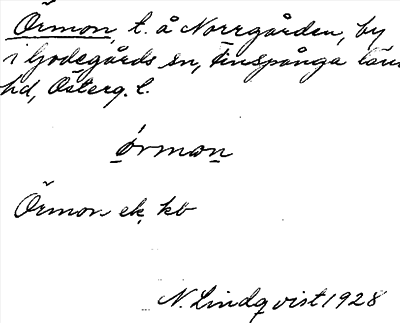 Örmon, t. å Norrgården, by
i Godegårds sn, Finspånga län
hd, Österg. l.
ørmon
Örmon ek kb
N. Lindqvist 1928